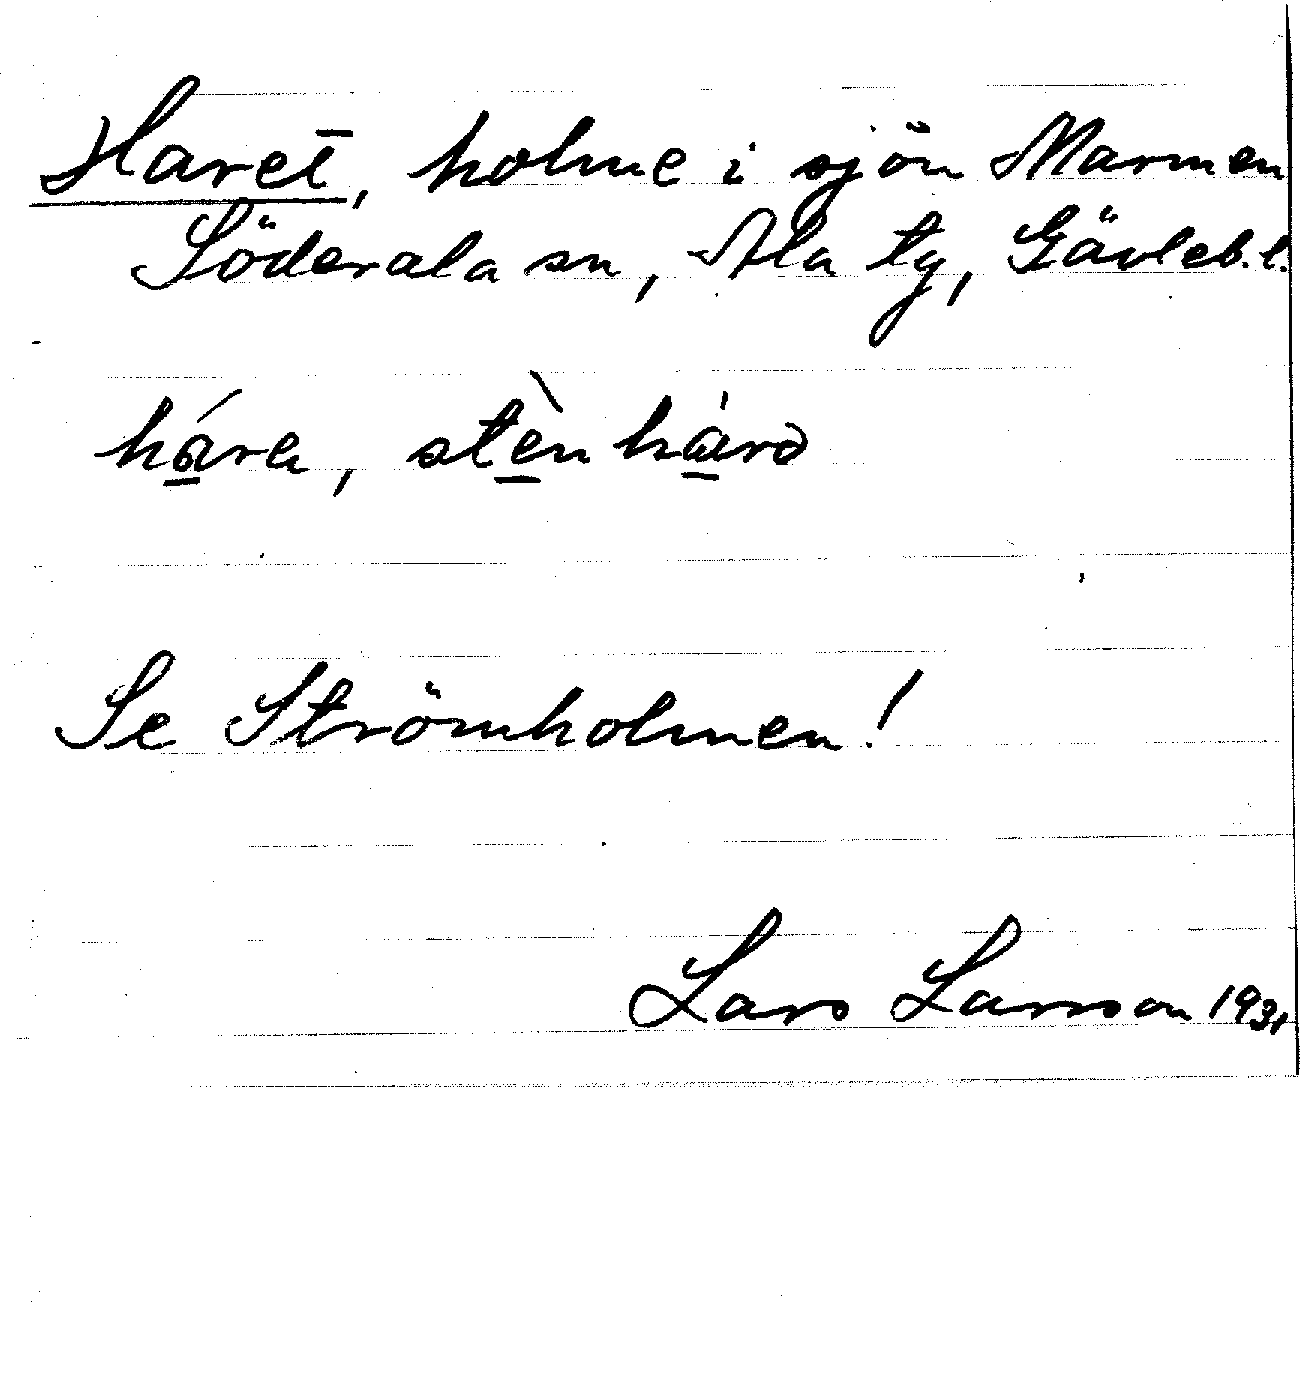 Haret, holme i sjön Marmen
Söderala sn, Ala tg, Gävleb.l.
há̱ra, stè̱nhá̱rə
Se Strömholmen!
Lars Larsson 1931